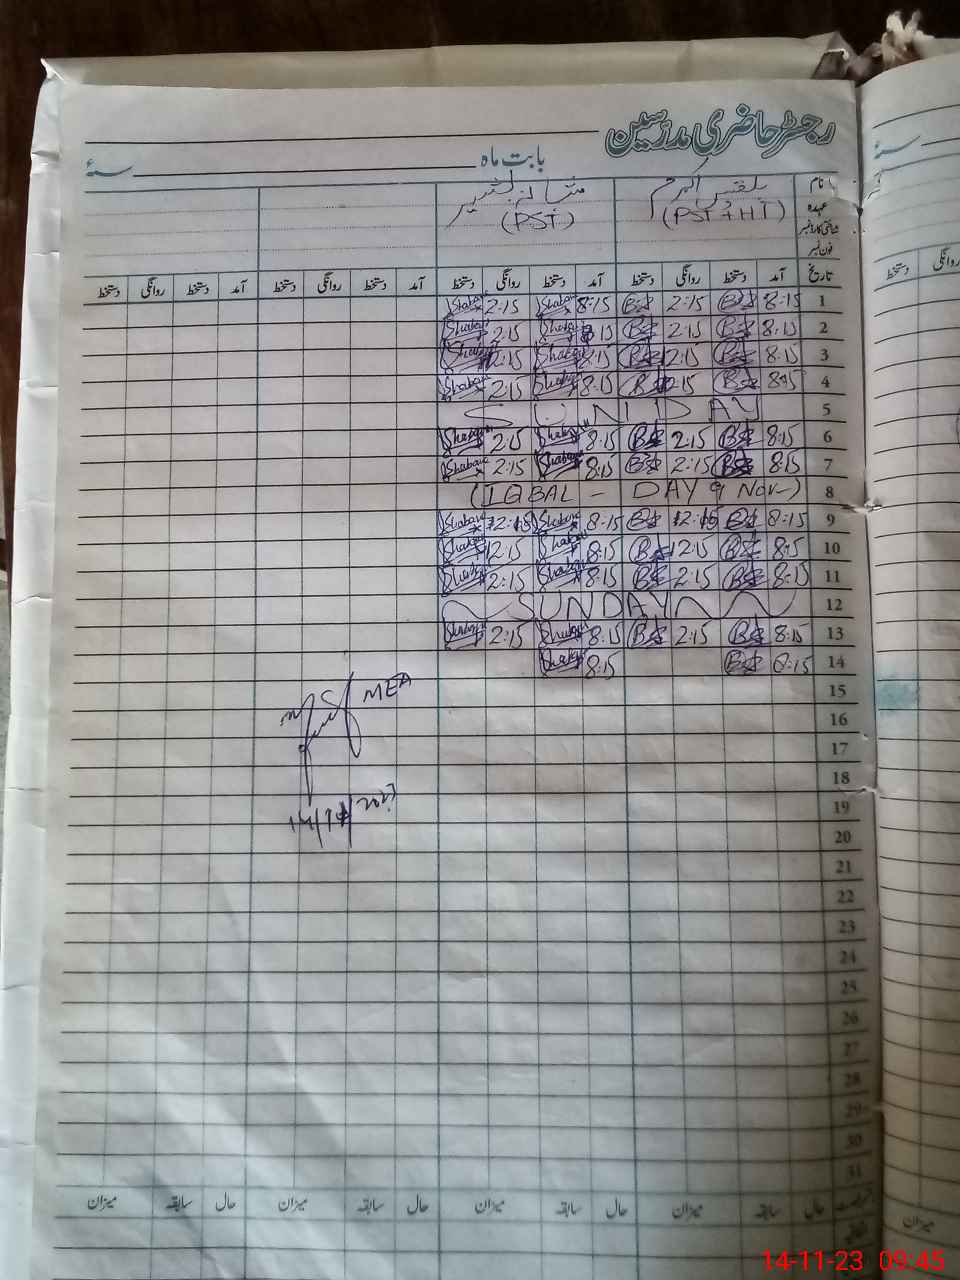 رجسٹر حاضری مدرسین
بابت ماہ سنۂ
نام بلقیس اکرم
عہدہ (PST + HT) (PST)
شناختی کارڈ نمبر
فون نمبر
تاریخ آمد دستخط روانگی دستخط آمد دستخط روانگی دستخط آمد دستخط روانگی دستخط آمد دستخط روانگی دستخط
1 8:15 2:15 8:15 Shabana 2:15 Shabana
2 8:15 2:15 8:15 2:15 Shabana
3 8:15 2:15 Shabana 8:15 2:15 Shabana
4 8:15 2:15 Shabana 8:15 2:15 Shabana
5 SUNDAY
6 8:15 2:15 Shabana 8:15 2:15 Shabana
7 8:15 2:15 Shabana 8:15 2:15 Shabana
8 (IQBAL - DAY 9 Nov-)
9 8:15 12:15 Shabana 8:15 12:15 Shabana
10 8:15 12:15 8:15 Shabana 12:15 Shabana
11 8:15 2:15 Shabana 8:15 2:15 Shabana
12 SUNDAY
13 8:15 2:15 8:15 2:15
14 8:15 8:15
15
MEA
16
17
18
19
14/11/2023
20
21
22
23
24
25
26
27
28
29
30
31
حال سابقہ میزان حال سابقہ میزان حال سابقہ میزان حال سابقہ میزان
سنۂ
روانگی دستخط
میزان
14-11-23 09:45